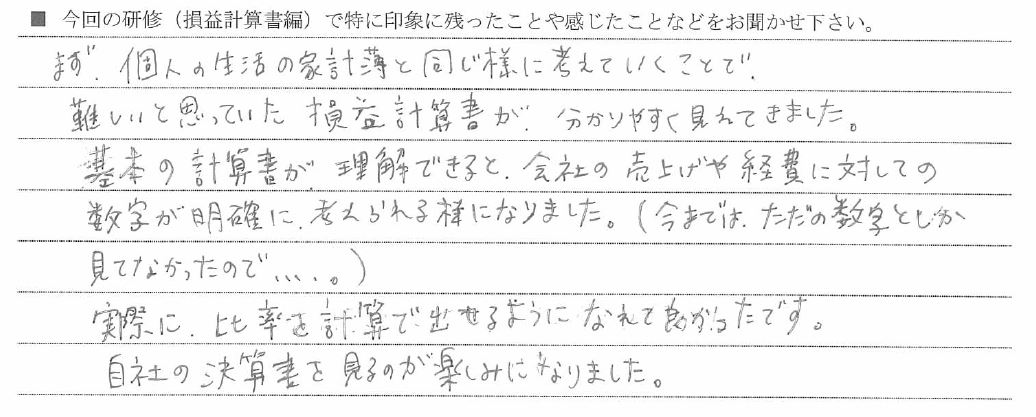 ■ 今回の研修（損益計算書編）で特に印象に残ったことや感じたことなどをお聞かせ下さい。
まず、個人の生活の家計薄と同じ様に考えていくことで、
難しいと思っていた損益計算書が、分かりやすく見れてきました。
基本の計算書が、理解できると、会社の売上げや経費に対しての
数字が明確に、考えられる様になりました。（今までは、ただの数字としか
見てなかったので、、、、。）
実際に、比率を計算で出せるようになれて良かったです。
自社の決算書を見るのが楽しみになりました。